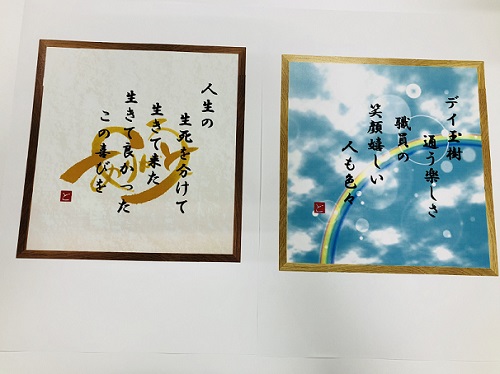 人生の
生死を分けて
生きて来た
生きて良かった
この喜びを
と
デイ玉樹
通う楽しさ
職員の
笑顔嬉しい
人も色々
と